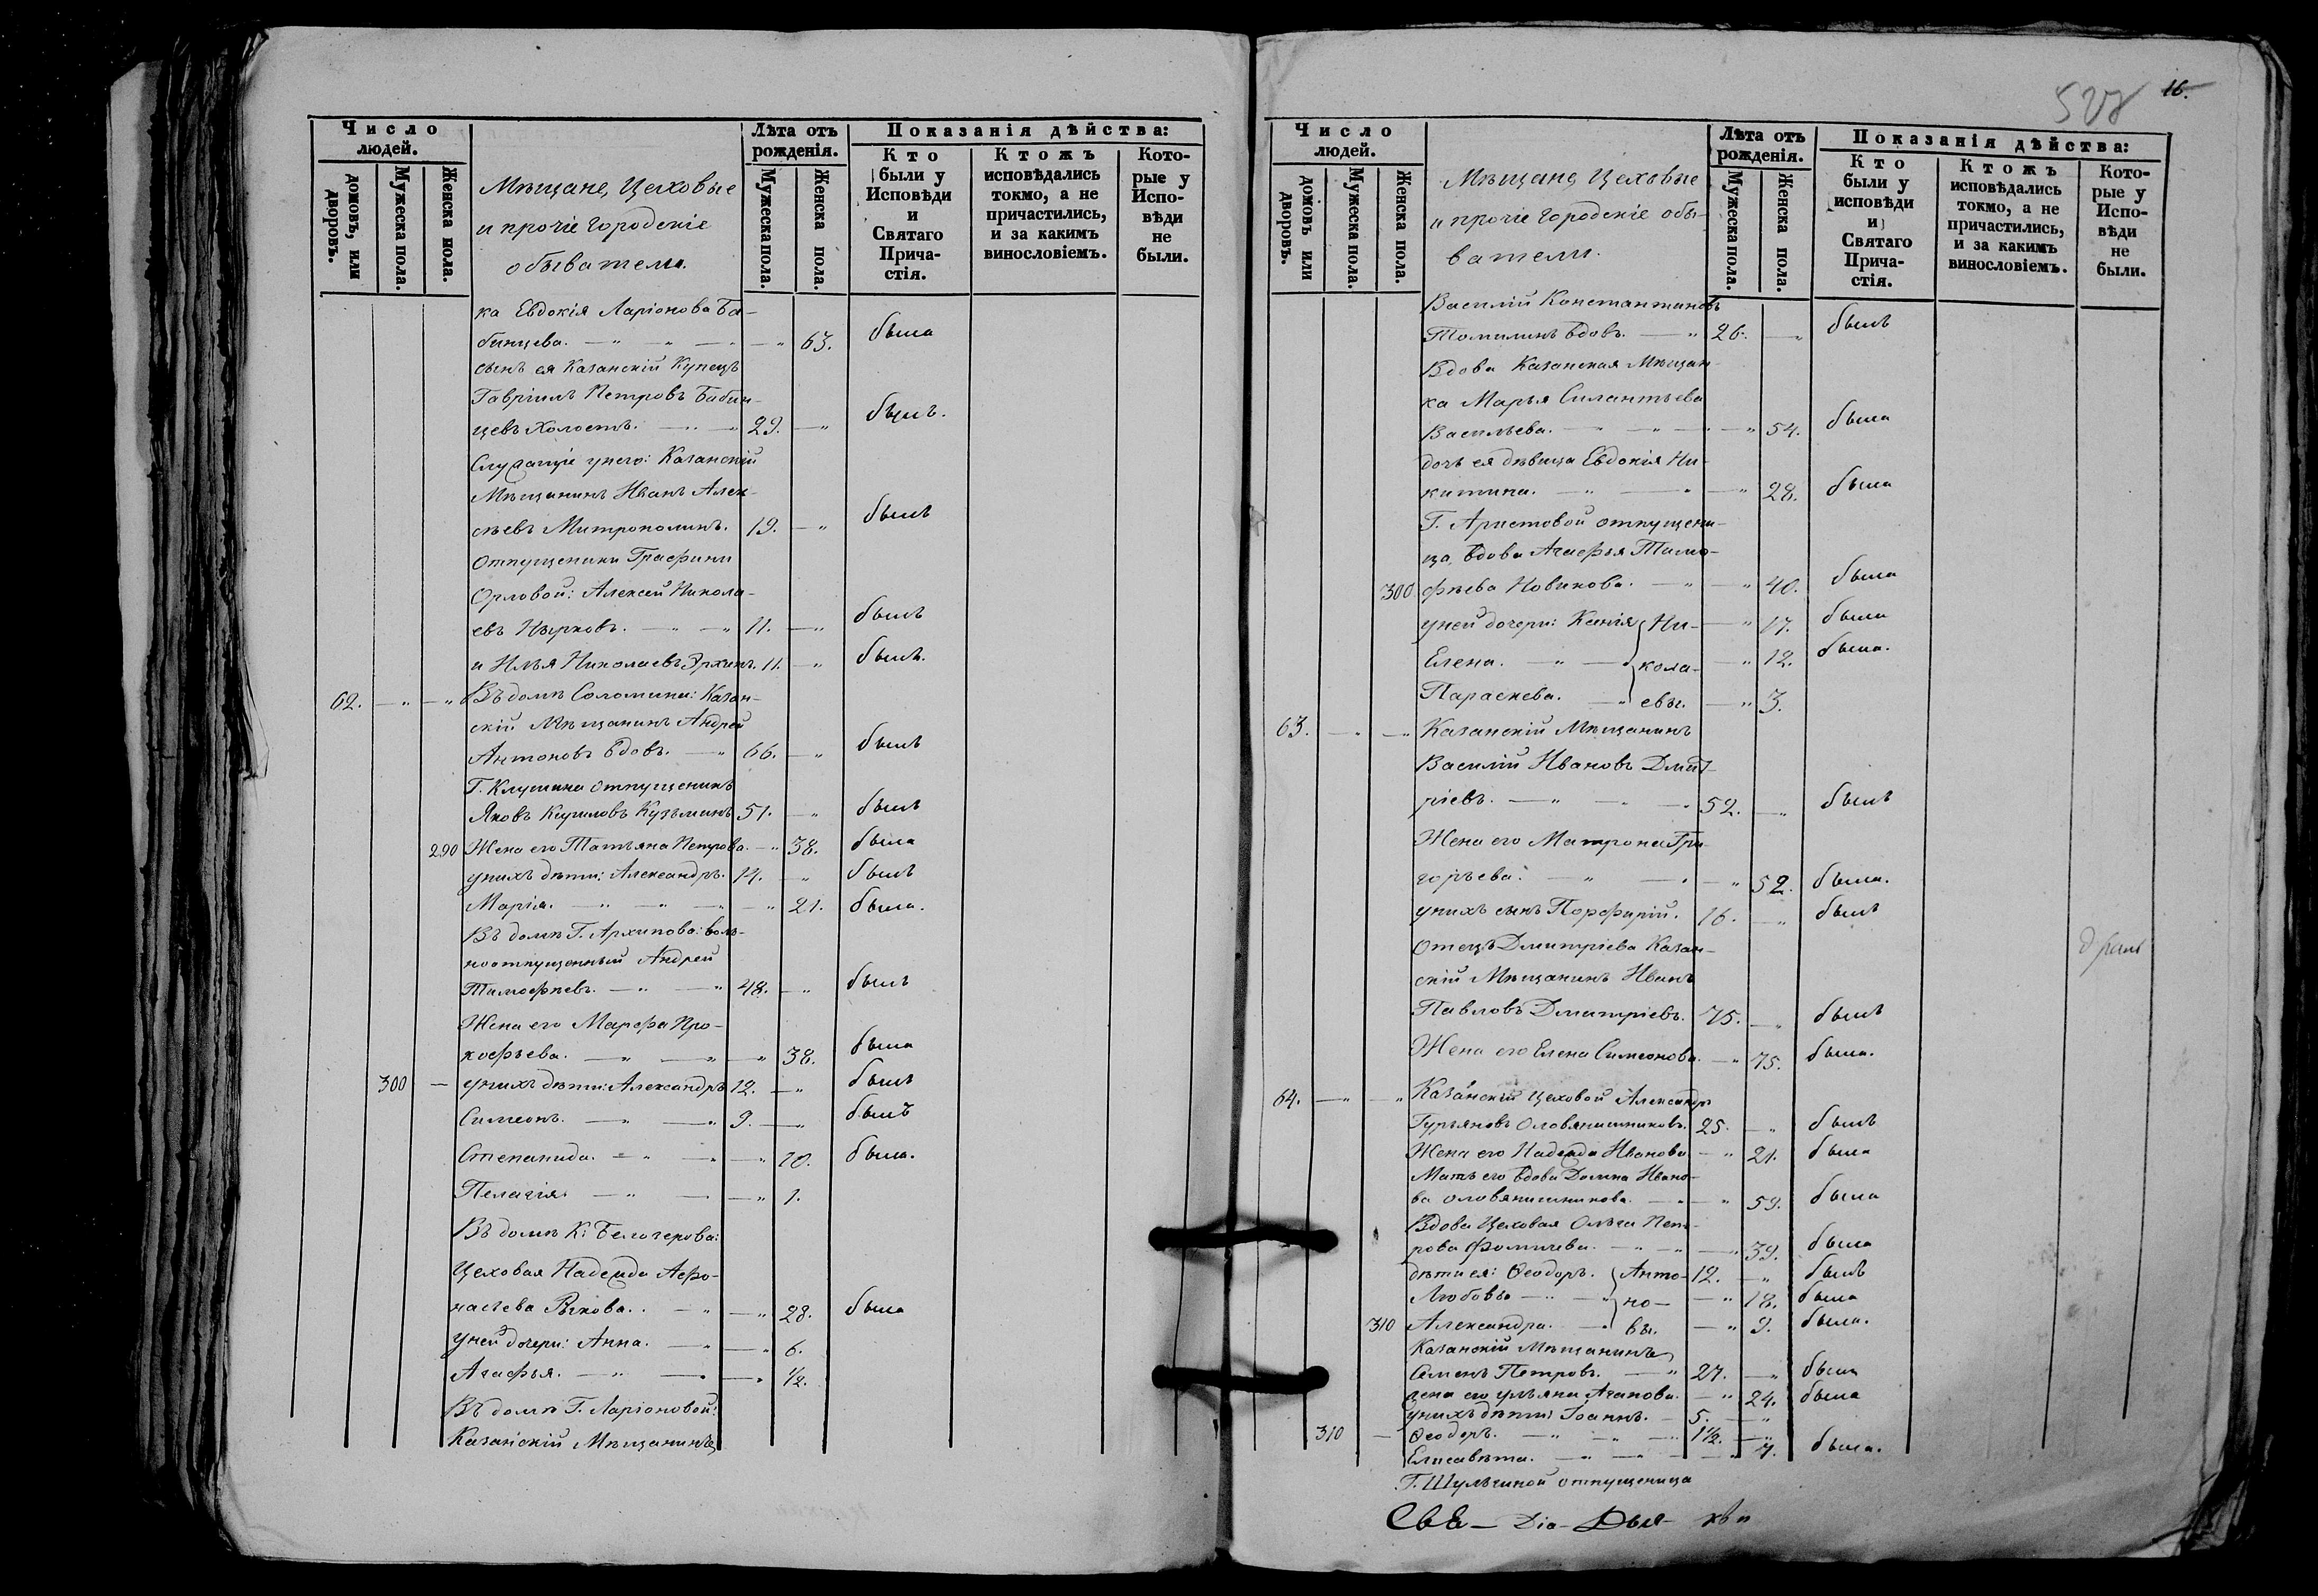 Число людей.
домовъ, или дворовъ.
Мужеска пола.
Женска пола.
Мѣщане, Цеховые
и прочіе городскіе
обыватели.
Лѣта отъ рожденія.
Мужеска пола.
Женска пола.
Показанія дѣйства:
Кто были у Исповѣди и Святаго Причастія.
Ктожъ исповѣдались токмо, а не причастились, и за какимъ винословіемъ.
Которые у Исповѣди не были.
ка Евдокія Ларіонова Ба-
бинцева. — " — " — " 63. была
сынъ ея Казанскій Купецъ
Гавріилъ Петровъ Бабин-
цевъ Холостъ. — " 29. — " былъ.
Служащіе у него: Казанскій
Мѣщанинъ Иванъ Алек-
сѣевъ Митрополинъ. 19. — " былъ
Отпущеники Графини
Орловой: Алексей Никола-
евъ — " — " 11. — " былъ
и Илья Николаевъ 11. — " былъ.
62. — " — " Въ домѣ Соломина: Казан-
скій Мѣщанинъ Андрей
Антоновъ вдовъ. — " 66. — " былъ
Г. Клушина отпущенникъ
Яковъ Кириловъ Кузьминъ 51. — " былъ
290 Жена его Татьяна Петрова. — " 38. была
у нихъ дѣти: Александръ. 14. — " былъ
Марія. — " — " — " 21. была.
Въ домѣ Г. Архипова: воль-
ноотпущенный Андрей
Тимофѣевъ. — " — " 48. — " былъ
Жена его Марфа Про-
кофьева. — " — " — " 38. была
300 — у нихъ дѣти: Александръ 12. — " былъ
Симеонъ. — " — " 9. — " былъ
Степанида. — " — " — " 10. была.
Пелагія. — " — " — " 1.
Въ домѣ К: Белозерова:
Цеховая Надежда Афо-
насьева Рыкова. — " — " 28. была
у ней дочери: Анна. — " — " 6.
Агафья. — " — " — " 1/2.
Въ домѣ Г. Ларіоновой:
Казанскій Мѣщанинъ
528 16.
Число людей.
домовъ или дворовъ.
Мужеска пола.
Женска пола.
Мѣщане, Цеховые
и прочіе городскіе обы-
ватели.
Лѣта отъ рожденія.
Мужеска пола.
Женска пола.
Показанія дѣйства:
Кто были у исповѣди и Святаго Причастія.
Ктожъ исповѣдались токмо, а не причастились, и за какимъ винословіемъ.
Которые у Исповѣди не были.
Василій Константиновъ
Томилинъ вдовъ. — " 26. — " былъ
Вдова Казанская Мѣщан-
ка Марья Силантьева
Васильева. — " — " — " 54. была
дочь ея дѣвица Евдокія Ни-
китина. — " — " — " 28. была
Г. Аристовой отпущени-
ца, вдова Агафья Тимо-
300 фѣева Новикова. — " — " 40. была
у ней дочери: Ксенія Ни- — " 17. была
Елена. — " — " кола- — " 12. была.
Параскева. — " евы. — " 3.
63. — " — " Казанскій Мѣщанинъ
Василій Ивановъ Дмит-
ріевъ. — " — " — " 52. — " былъ
Жена его Матрона Гри-
горьева. — " — " — " 52. была.
у нихъ сынъ Порфирій. 16. — " былъ
Отецъ Дмитріева Казан-
скій Мѣщанинъ Иванъ
Павловъ Дмитріевъ. 75. — " былъ
Жена его Елена Симеонова. — " 75. была.
64. — " — " Казанскій Цеховой Александръ
Гурьяновъ Оловянишниковъ. 25. — " былъ
Жена его Надежда Иванова — " 21. была
Мать его вдова Домна Ивано-
ва Оловянишникова. — " — " 59. была
Вдова Цеховая Ольга Пет-
рова Фомичева. — " — " — " 39. была
дѣти ея: Ѳеодоръ. Анто- 12. — " былъ
Любовь — " но- — " 18. была
310 Александра. — " вы. — " 9. была.
Казанскій Мѣщанинъ
Семенъ Петровъ. — " 27. — " былъ
жена его Ульяна Агапова. — " 24. была
у нихъ дѣти: Іоаннъ. — 5. — "
310 — Ѳеодоръ. — " — " — " 1 1/2. — "
Елисавета. — " — " — " 7. была.
Г. Шульгиной отпущеница